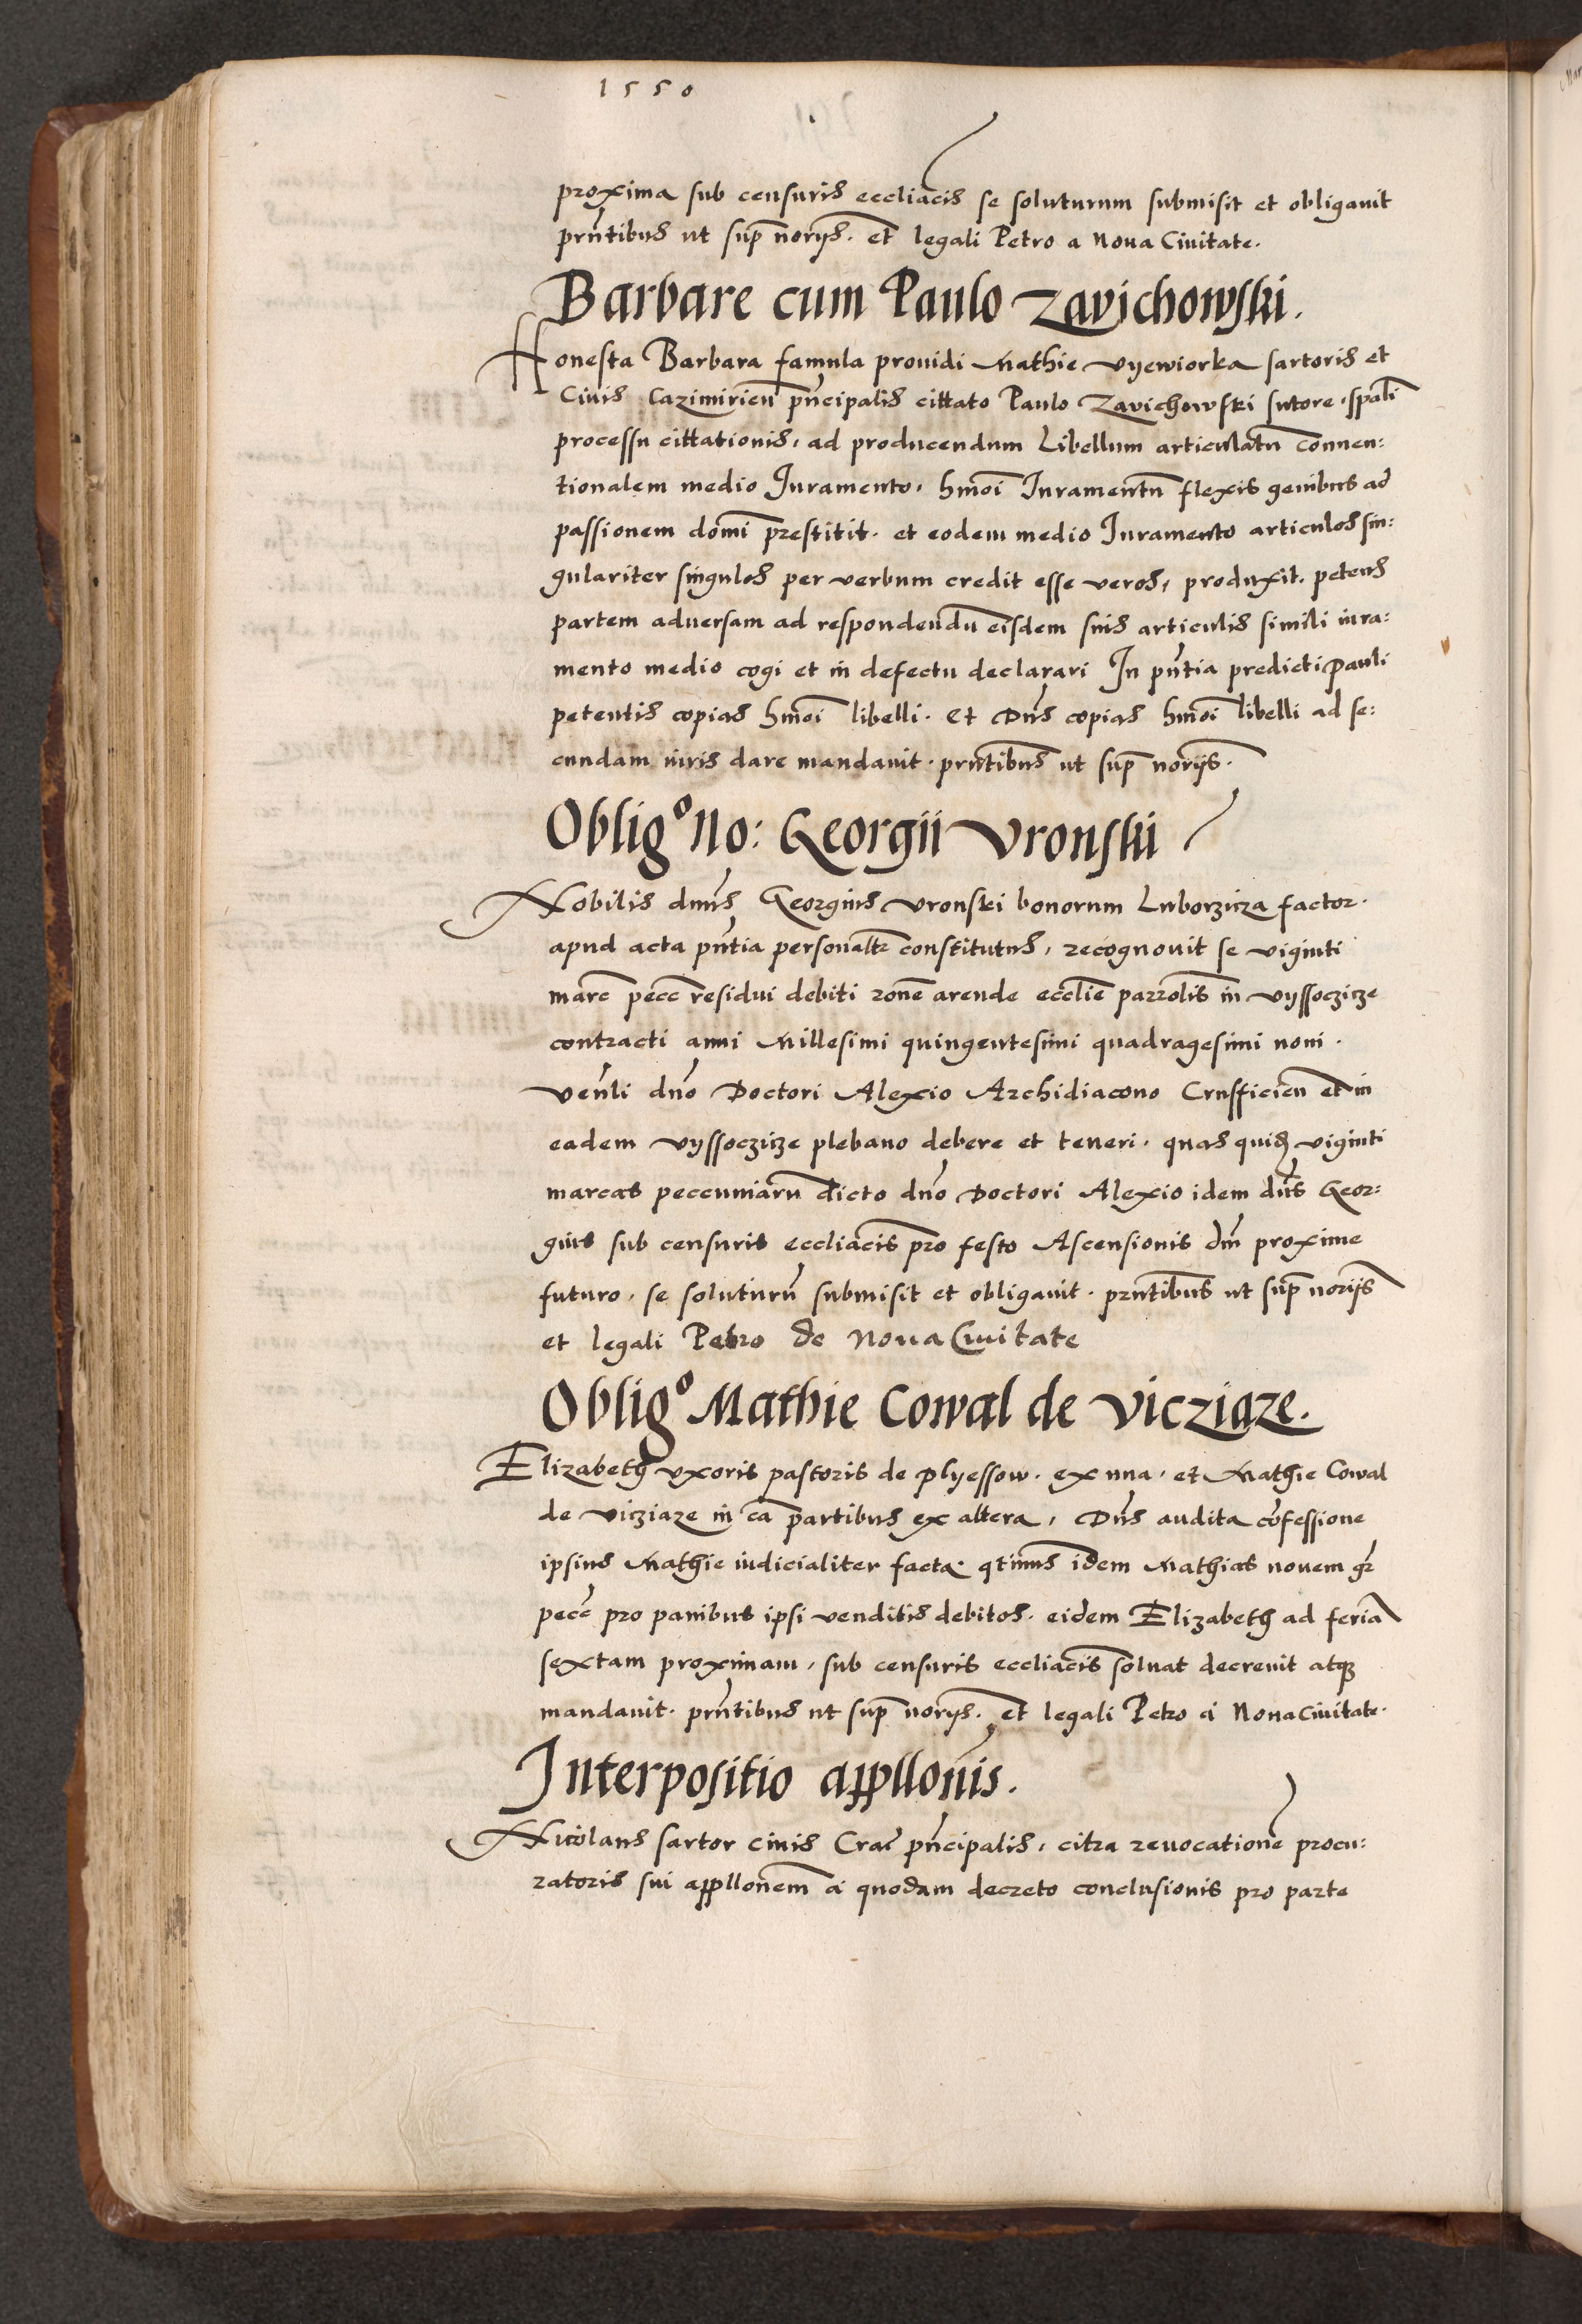 1550
proxima sub censuris eccliacis se soluturum submisit et obligavit
prñtibus ut sup norijs. et legali Petro a Nova Civitate.
Barbare cum Paulo Zavichowski.
Honesta Barbara famula providi Mathie Vyewiorka sartoris et
Civis Cazimirien̄ prīncipalis cittato Paulo Zavichowski sutore, spali
processu cittationis, ad producendum Libellum articulatū conven:
tionalem medio Juramento, hmōi Juramentū flexis genibus ad
passionem domī prestitit. et eodem medio Juramento articulos sin:
gulariter singulos per verbum credit esse veros, produxit. petens
partem adversam ad respondendū eisdem suis articulis simili iura:
mento medio cogi et in defectu declarari In pñtia predicti Pauli
petentis copias hmōi libelli. Et Dns copias hmōi libelli ad se:
cundam iuris dare mandavit. prñtibus ut sup norijs.
Oblig° No: Georgii Vronski
Nobilis dnus Georgius Vronski bonorum Luborzicza factor.
apud acta pñtia personaltr constitutus, recognovit se viginti
marc̄ pecc̄ residui debiti rōne arende ecclīe parrolis in Vyssoczicze
contracti anni Millesimi quingentesimi quadragesimi noni.
Venli dn̄o Doctori Alexio Archidiacono Crusficien̄ et in
eadem Vyssoczicze plebano debere et teneri. quas quiđ viginti
marcas peccuniarū dicto dn̄o Doctori Alexio idem dns Geor:
gius sub censuris eccliacis pro festo Ascensionis dn̄i proxime
futuro, se soluturū submisit et obligavit. prñtibus ut sup norijs
et legali Petro de Nova Civitate
Oblig° Mathie Cowal de Vicziaze.
Elizabeth uxoris pastoris de Plyessow. ex una. et Mathie Cowal
de Vicziaze in cā partibus ex altera, Dns audita cōfessione
ipsius Mathie iudicialiter facta. qtinus idem Mathias novem gr̄
pecc̄ pro panibus ipsi venditis debitos. eidem Elizabeth ad feriā
sextam proximam, sub censuris eccliacis solvat decrevit atq
mandavit. prñtibus ut sup norijs. et legali Petro a Nova Civitate.
Interpositio appllonis.
Nicolaus sartor civis Crac̄ prīncipalis, citra revocationē procu:
ratoris sui appllonem a quodam decreto conclusionis pro parte